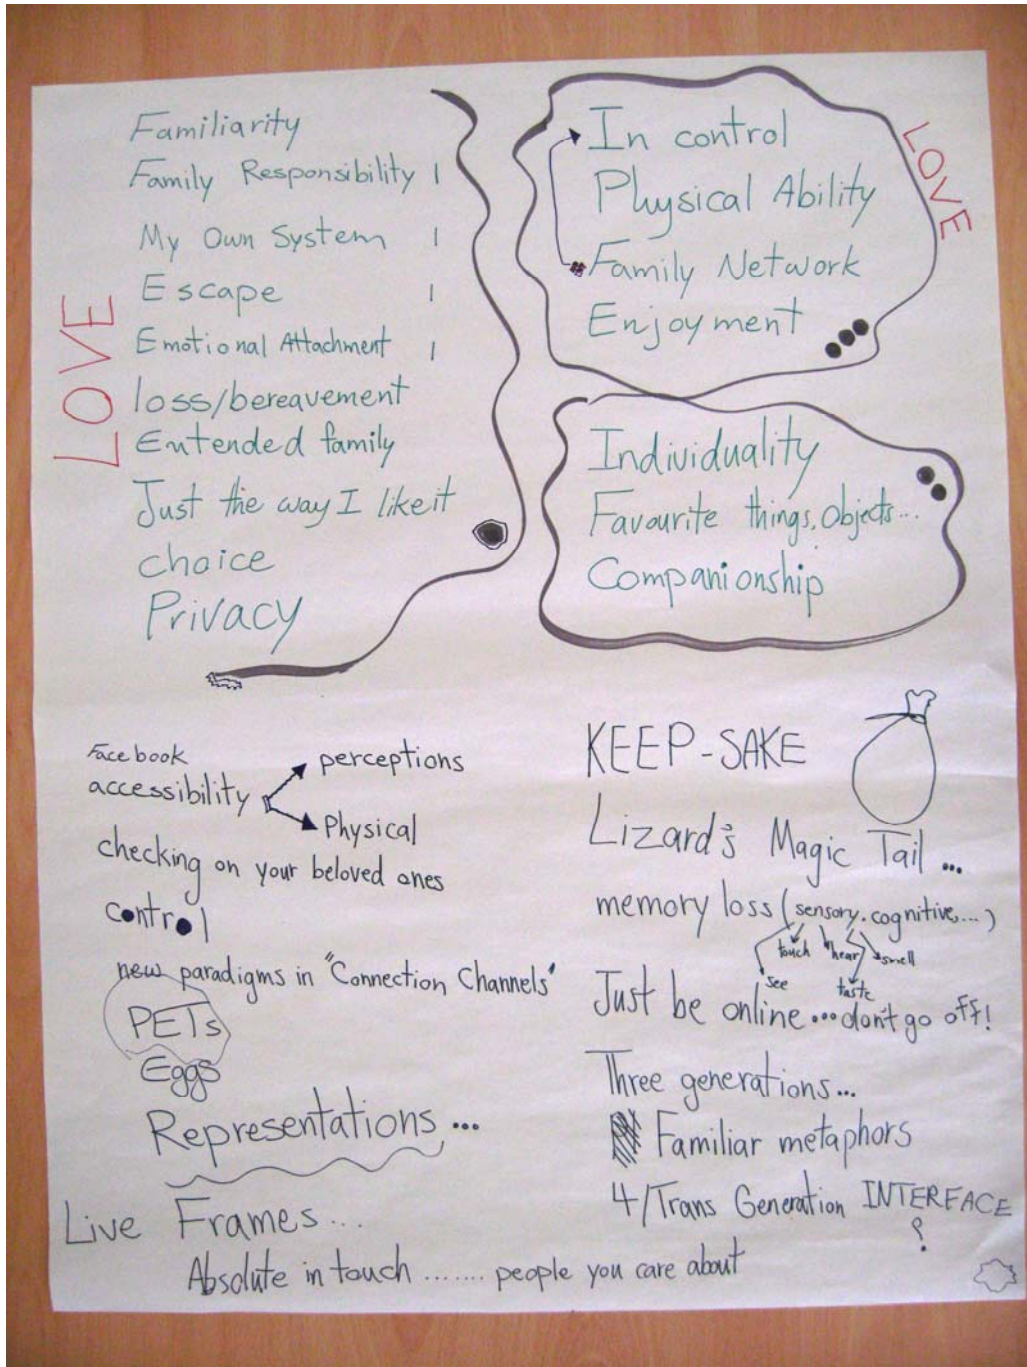 Familiarity
Family Responsibility 1
My Own System 1
Escape 1
Emotional Attachment 1
loss/bereavement
Entended family
Just the way I like it
choice
Privacy
LOVE
In control
Physical Ability
Family Network
Enjoyment
LOVE
Individuality
Favourite things, Objects...
Companionship
Facebook
accessibility
perceptions
Physical
checking on your beloved ones
control
new paradigms in "Connection Channels"
PETs
Eggs
Representations...
Live Frames...
Absolute in touch ....... people you care about
KEEP-SAKE
Lizard's Magic Tail ...
memory loss (sensory, cognitive,...)
touch hear smell
see taste
Just be online...don't go off!
Three generations...
Familiar metaphors
4/Trans Generation INTERFACE
?